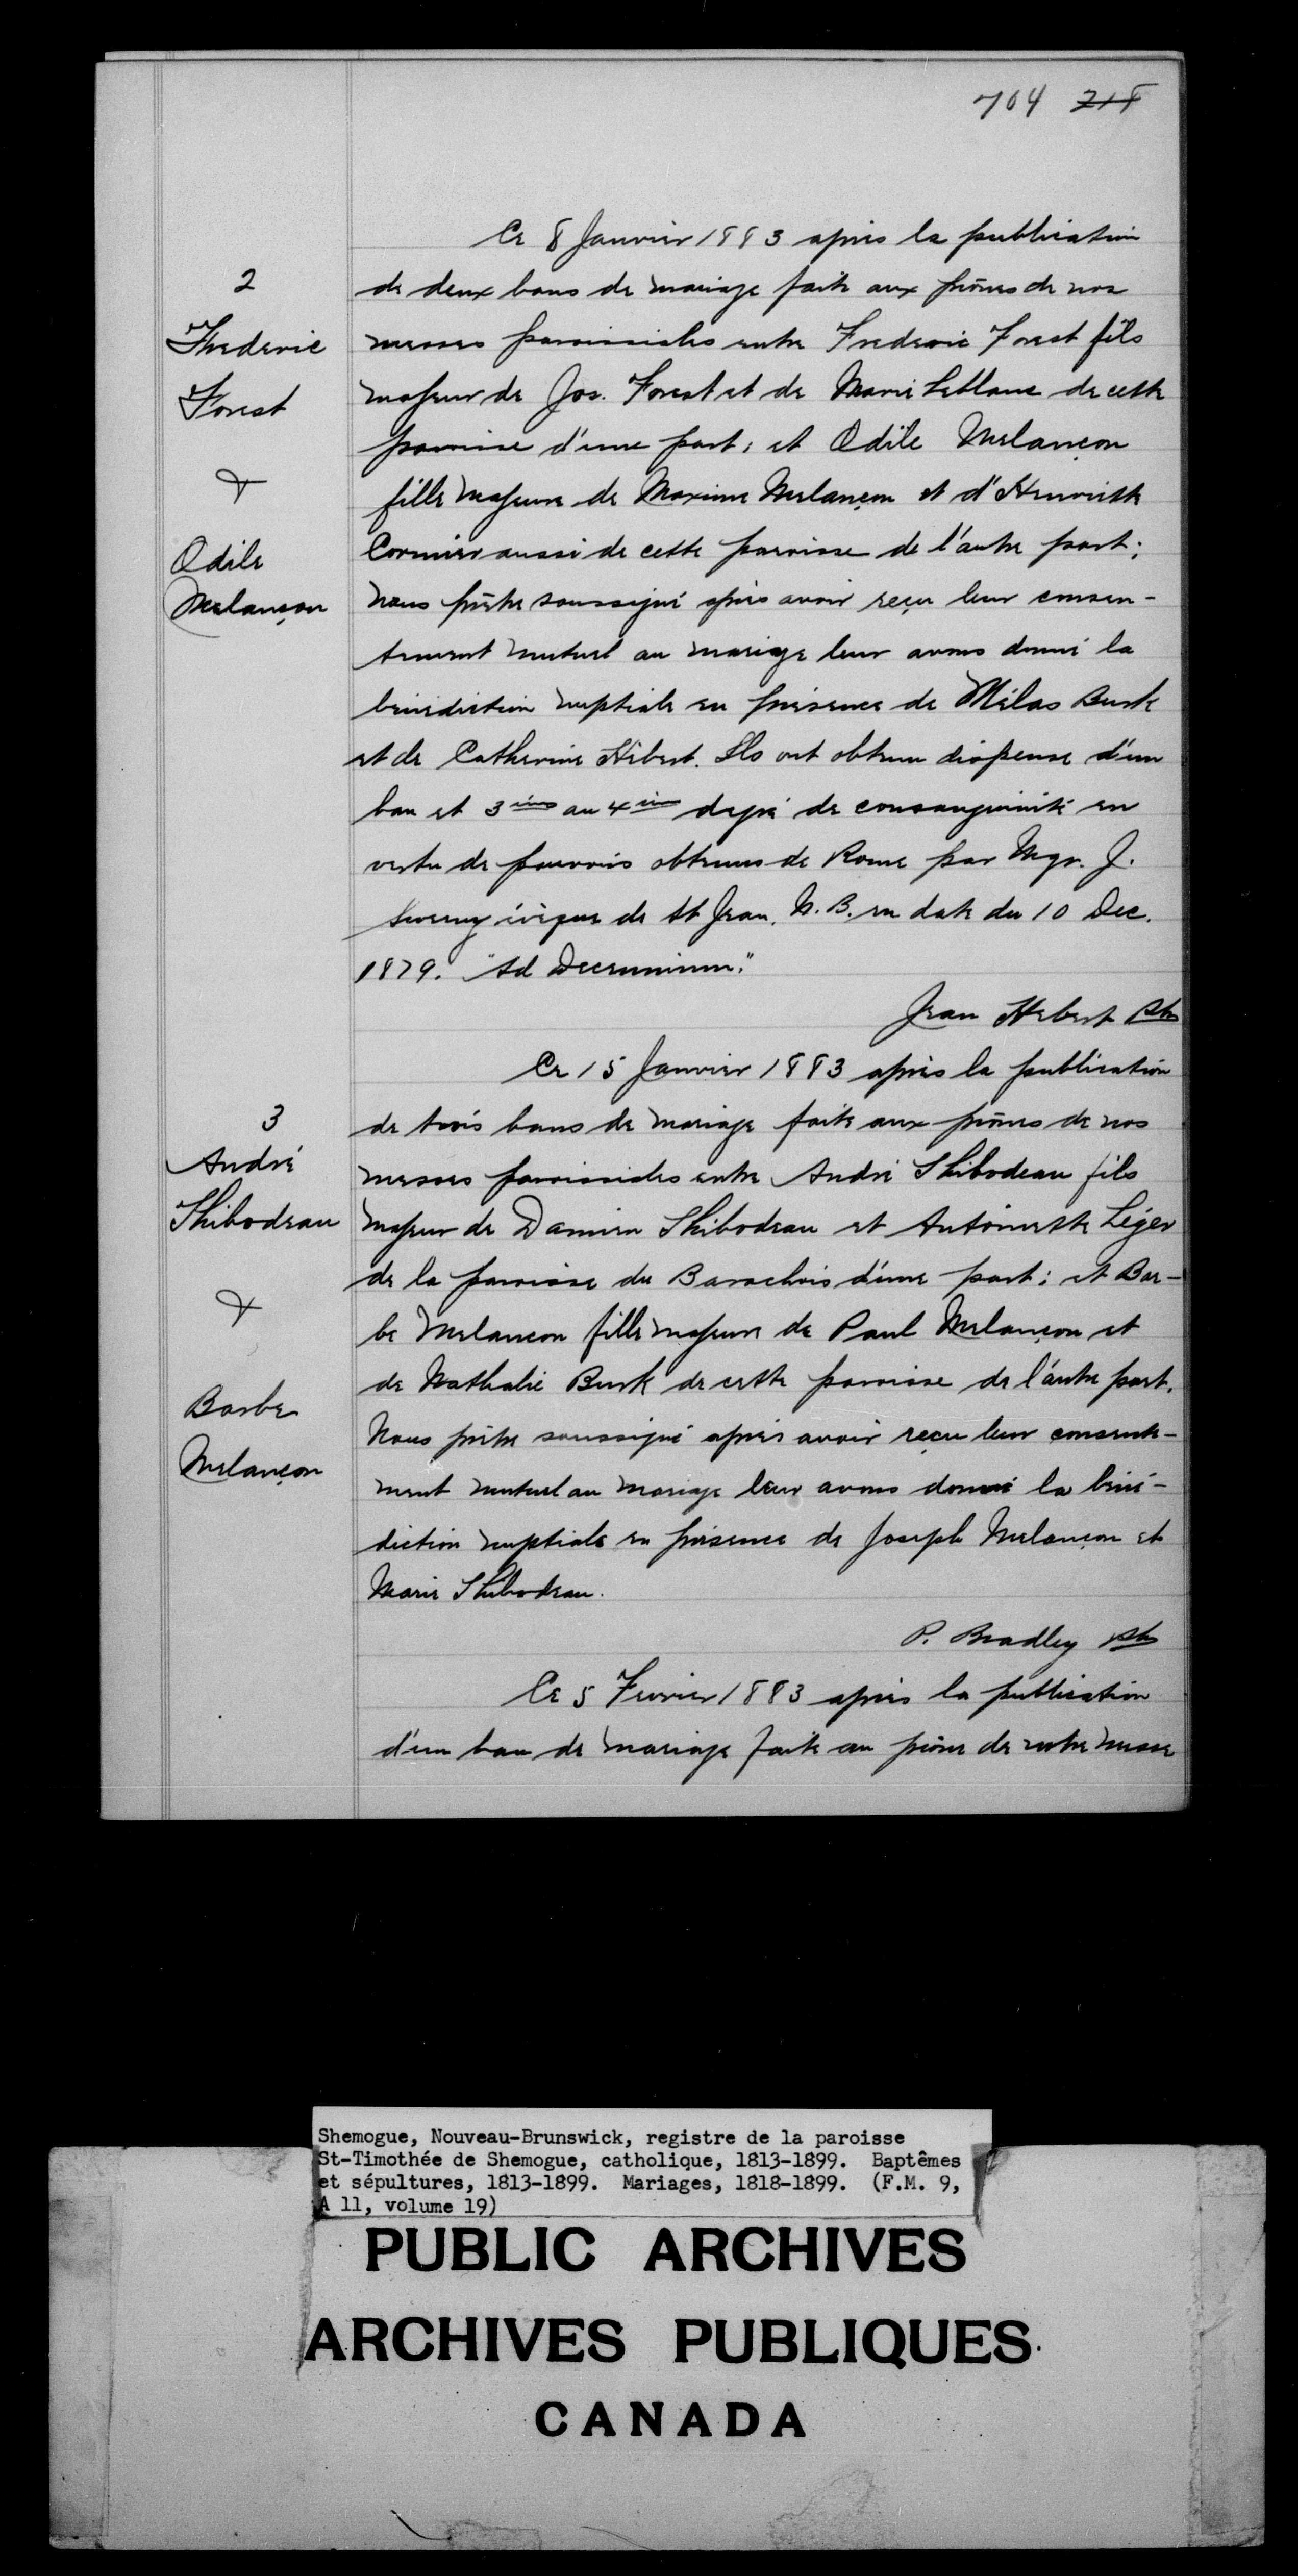 704 718
Ce 8 Janvier 1883 après la publication
2
de deux bans de mariage faite aux prônes de nos
Frederic
messes paroissiales entre Frederic Forest fils
Forest
majeur de Jos. Forest et de Marie Leblanc de cette
paroisse d'une part; et Odile Melançon
&
fille majeure de Maxime Melançon et d'Henriette
Odile
Cormier aussi de cette paroisse de l'autre part;
Melançon
Nous prêtre soussigné après avoir reçu leur consen-
tement mutuel au mariage leur avons donné la
bénédiction nuptiale en présence de Mélas Burk
et de Catherine Hébert. Ils ont obtenu dispense d'un
ban et 3ième au 4ième degré de consanguinité en
vertu de pouvoirs obtenus de Rome par Mgr. J.
Sweeny évêque de St Jean, N.B. en date du 10 Dec.
1879. "Ad Decennium."
Jean Hebert Ptre
Ce 15 Janvier 1883 après la publication
3
de trois bans de mariage faite aux prônes de nos
André
messes paroissiales entre André Thibodeau fils
Thibodeau
majeur de Damien Thibodeau et Antoinette Léger
de la paroisse du Barachois d'une part; et Bar-
&
be Melancon fille majeure de Paul Melançon et
de Nathalie Burk de cette paroisse de l'autre part.
Barbe
Nous prêtre soussigné après avoir reçu leur consente-
Melançon
ment mutuel au mariage leur avons donné la béné-
diction nuptiale en présence de Joseph Melançon et
Marie Thibodeau.
P. Bradley Ptre
Ce 5 Fevrier 1883 après la publication
d'un ban de mariage faite au prône de notre messe
Shemogue, Nouveau-Brunswick, registre de la paroisse
St-Timothée de Shemogue, catholique, 1813-1899. Baptêmes
et sépultures, 1813-1899. Mariages, 1818-1899. (F.M. 9,
A 11, volume 19)
PUBLIC ARCHIVES
ARCHIVES PUBLIQUES
CANADA